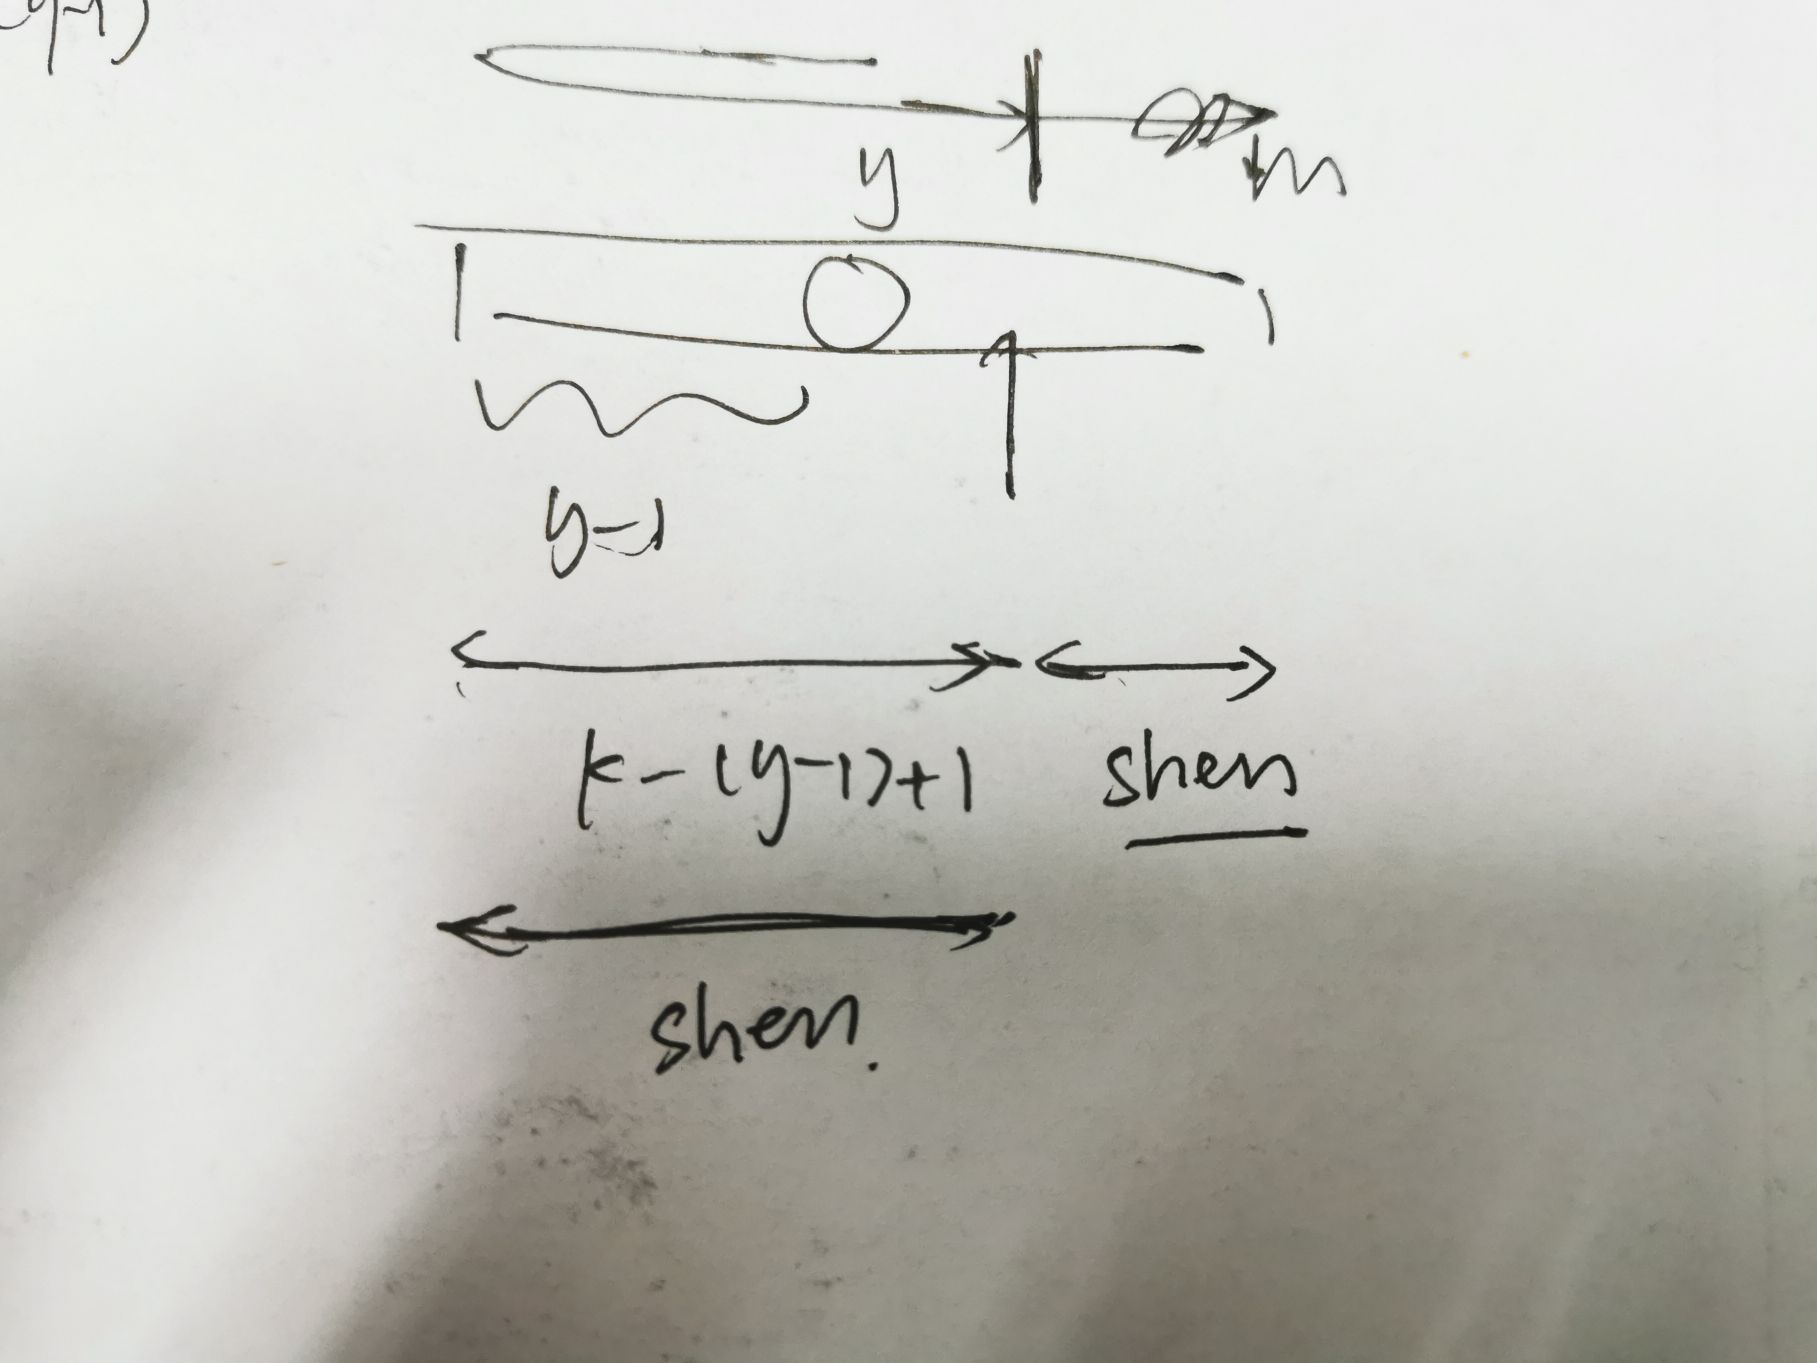 y-1)
m
y
1
y-1
k-(y-1)+1 shen
shen.